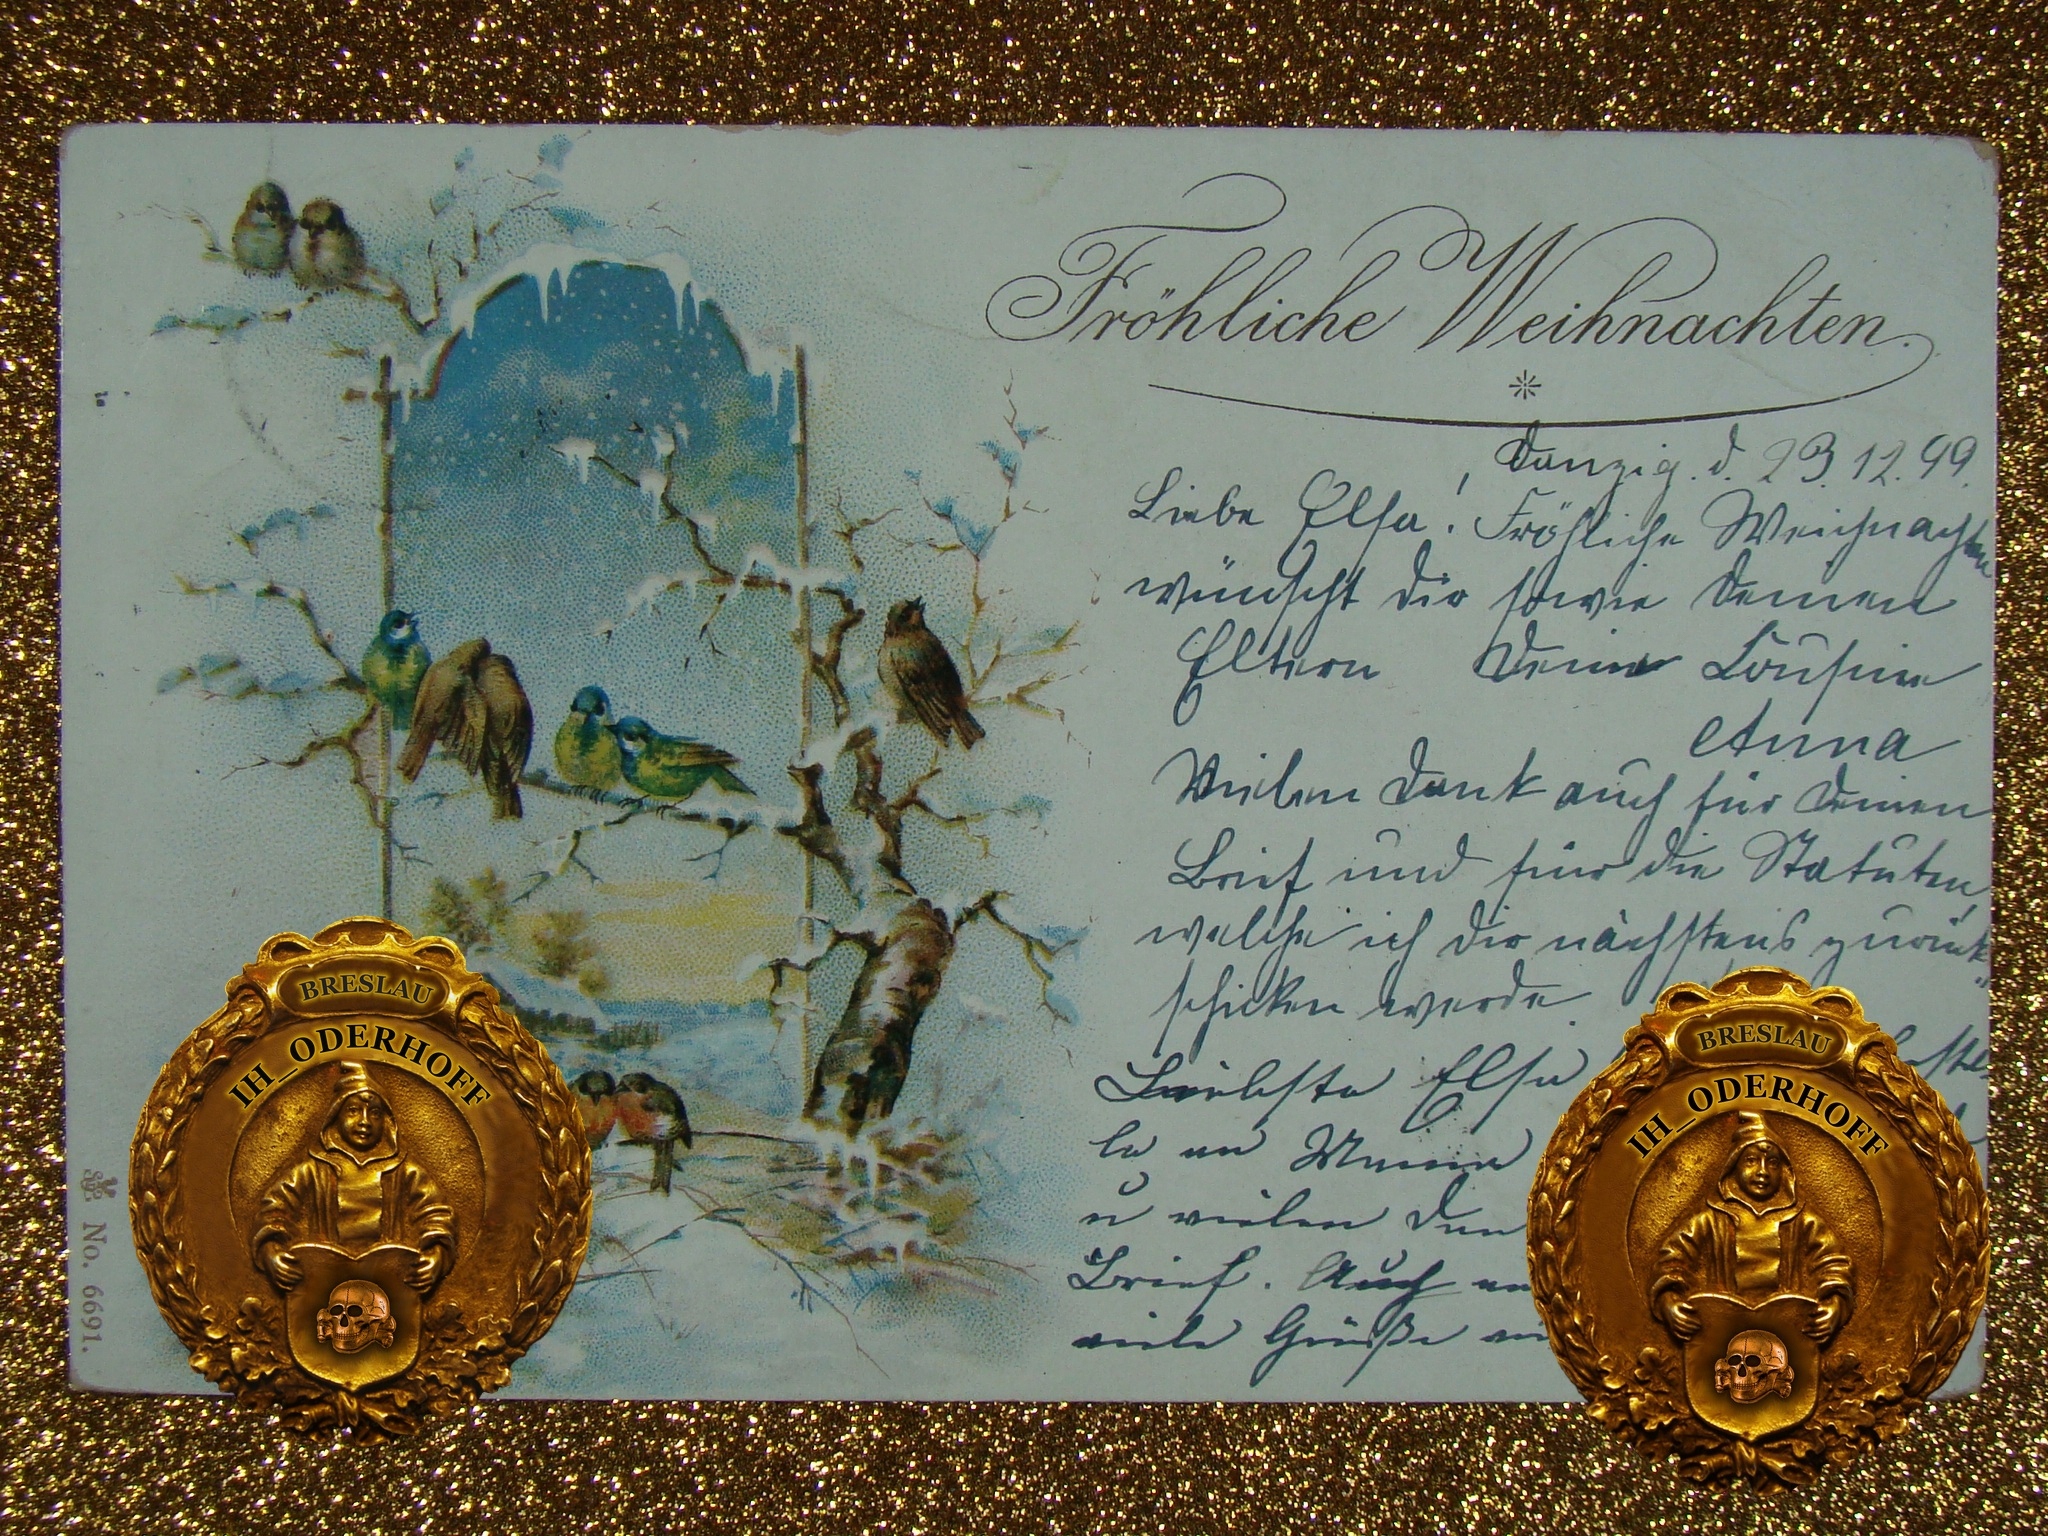 Fröhliche Weihnachten.
Danzig. d. 23.12.99.
Liebe Elsa! Fröhliche Weihnachten
wünscht dir sowie Deinen
Eltern Deine Cousine
Anna
Vielen Dank auch für Deinen
Brief und für die Statuten,
welche ich dir nächstens zurück
schicken werde.
Liebste Elsa
le an Mama
u vielen Dan
Brief. Auch
viele Grüße
No. 6691.
BRESLAU
IH_ODERHOFF
BRESLAU
IH_ODERHOFF